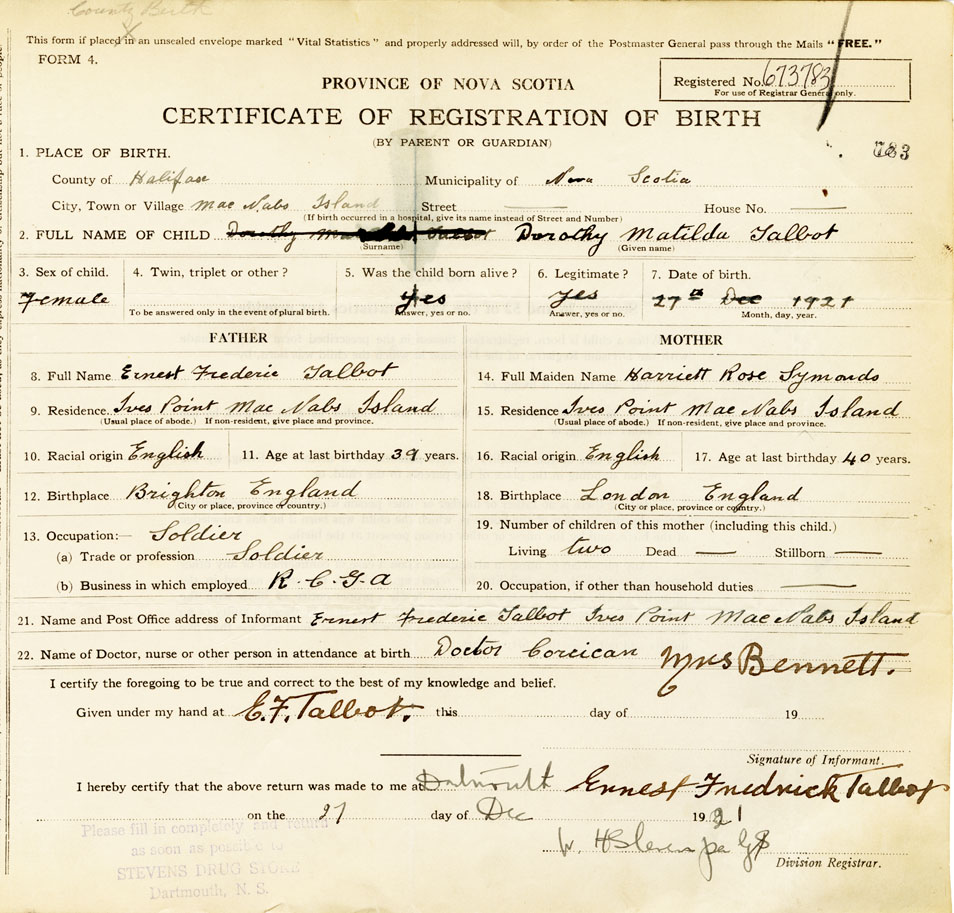 County Birth
This form if placed in an unsealed envelope marked "Vital Statistics" and properly addressed will, by order of the Postmaster General pass through the Mails "FREE."
FORM 4.
Registered No. 673783
For use of Registrar General only.
PROVINCE OF NOVA SCOTIA
CERTIFICATE OF REGISTRATION OF BIRTH
(BY PARENT OR GUARDIAN)
783
1. PLACE OF BIRTH.
County of Halifax Municipality of Nova Scotia
City, Town or Village Mac Nabs Island Street — House No. —
(If birth occurred in a hospital, give its name instead of Street and Number)
2. FULL NAME OF CHILD Dorothy Talbot Dorothy Matilda Talbot
(Surname) (Given name)
3. Sex of child. 4. Twin, triplet or other? 5. Was the child born alive? 6. Legitimate? 7. Date of birth.
Female yes yes 27th Dec 1921
To be answered only in the event of plural birth. Answer, yes or no. Answer, yes or no. Month, day, year.
FATHER MOTHER
8. Full Name Ernest Frederic Talbot 14. Full Maiden Name Harriett Rose Symonds
9. Residence. Ives Point Mac Nabs Island 15. Residence Ives Point Mac Nabs Island
(Usual place of abode.) If non-resident, give place and province. (Usual place of abode.) If non-resident, give place and province.
10. Racial origin English 11. Age at last birthday 39 years. 16. Racial origin English 17. Age at last birthday 40 years.
12. Birthplace Brighton England 18. Birthplace London England
(City or place, province or country.) (City or place, province or country.)
13. Occupation:— Soldier 19. Number of children of this mother (including this child.)
(a) Trade or profession Soldier Living two Dead — Stillborn —
(b) Business in which employed R.C.G.A 20. Occupation, if other than household duties —
21. Name and Post Office address of Informant Ernest Frederic Talbot Ives Point Mac Nabs Island
22. Name of Doctor, nurse or other person in attendance at birth Doctor Corcican Mrs Bennett.
I certify the foregoing to be true and correct to the best of my knowledge and belief.
Given under my hand at E.F. Talbot. this day of 19
Signature of Informant.
I hereby certify that the above return was made to me at Ernest Fredrick Talbot
on the 27 day of Dec 1921
W. H
Division Registrar.
Please fill in completely and return
as soon as possible to
STEVENS DRUG STORE
Dartmouth, N. S.